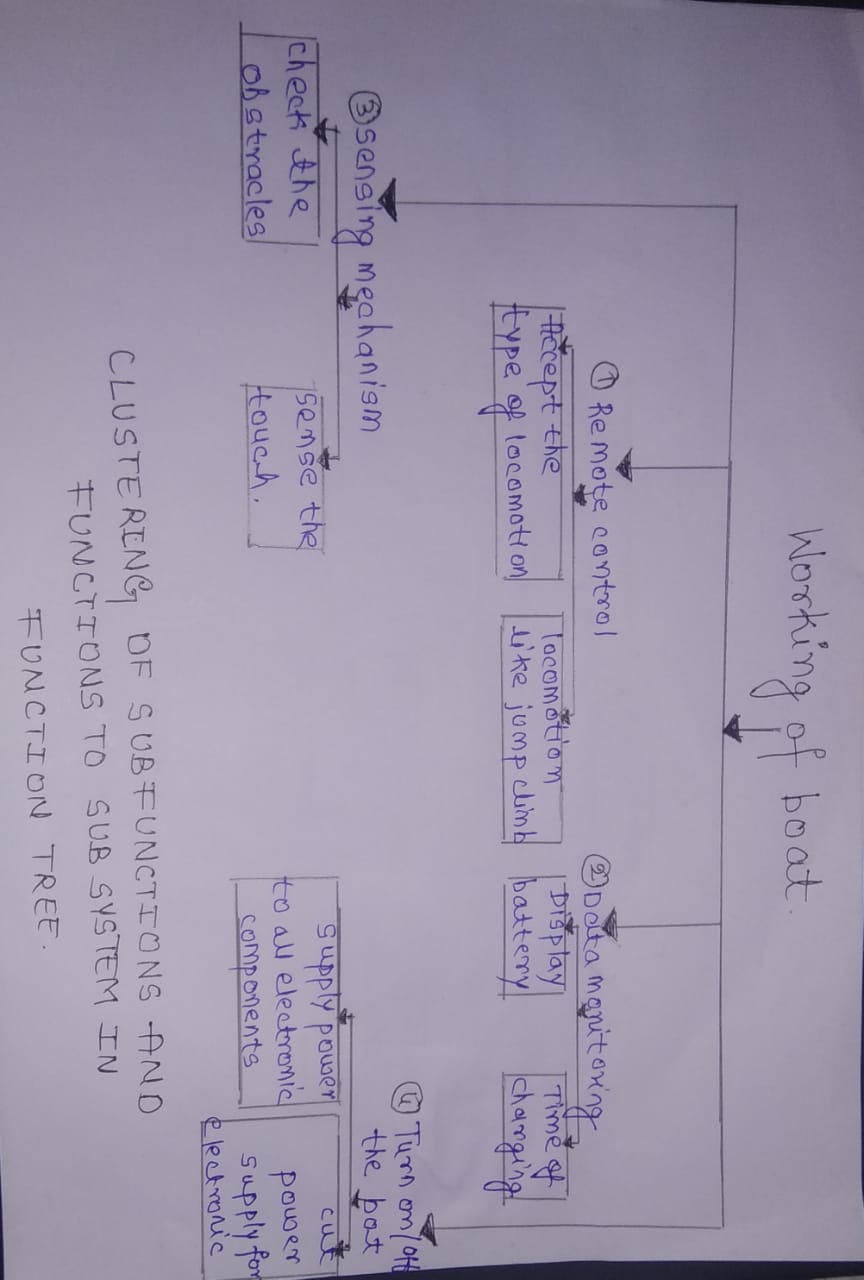 Working of boat.
① Remote control
Accept the
type of locomotion
locomotion
like jump climb
② Data monitoring
Display
battery
Time of
changing
③ sensing mechanism
check the
obstracles
sense the
touch.
④ Turn on/off
the bot
supply power
to all electronic
components
cut
power
supply for
electronic
CLUSTERING OF SUBFUNCTIONS AND
FUNCTIONS TO SUB SYSTEM IN
FUNCTION TREE.